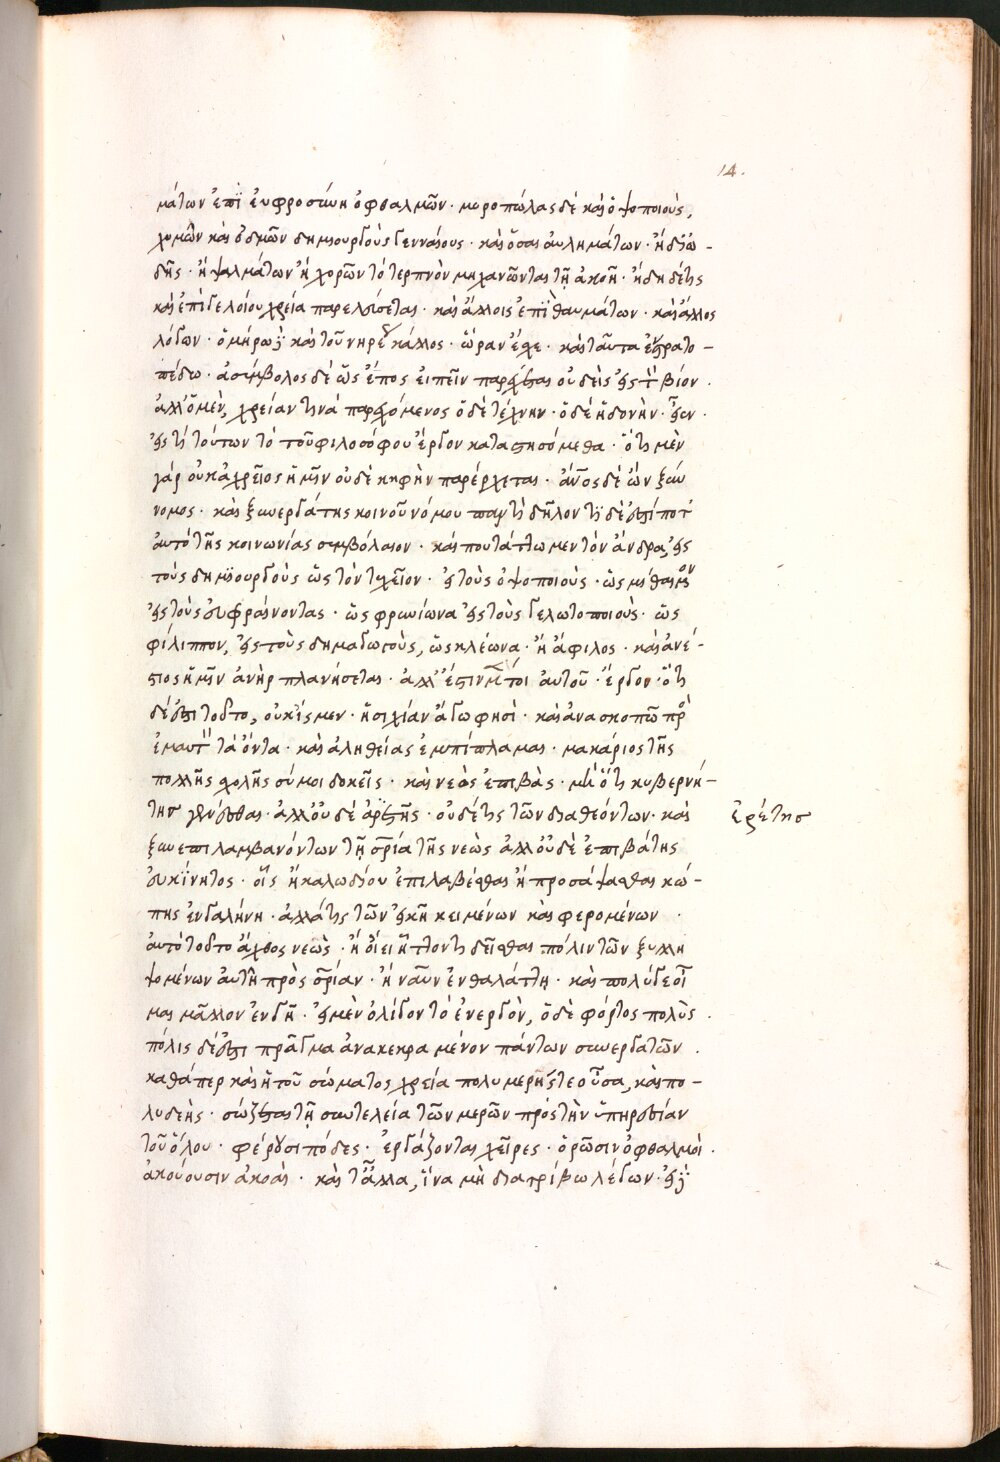 14.
μάτων ἐπὶ εὐφροσύνη ὀφθαλμῶν · μυροπώλας δὲ καὶ ὀψοποιοὺς,
χυμῶν καὶ ὀδμῶν δημιουργοὺς γενναίους · καὶ ὅσαι αὐλημάτων · ἢ ᾠ-
δῆς · ἢ ψαλμάτων ἢ χορῶν τὸ τερπνὸν μηχανῶνται τῇ ἀκοῇ · ἤδη δέ τις
καὶ ἐπὶ γελοίου χρεία παρελεύσεται · καὶ ἄλλοις ἐπὶ θαυμάτων · καὶ ἄλλος
λόγων · ὁμήρῳ καὶ τοῦ νηρέως κάλλος · ὥραν ἔχε · καὶ ταῦτα ἐν στρατο-
πέδω · ἀσύμβολος δὲ ὡς ἔπος εἰπεῖν παρέρχεται οὐδεὶς εἰς τὸν βίον ·
ἀλλ' ὁ μὲν, χρείαν τινὰ παρεχόμενος ὁ δὲ τέχνην · ὁ δὲ ἡδονὴν · φέρε
εἰς τί τούτων τὸ τοῦ φιλοσόφου ἔργον καταστησόμεθα · ὅτι μὲν
γάρ οὐκ ἀχρεῖος ἡμῖν οὐδὲ κηφὴν παρέρχεται · ἀνος δὲ ὢν ξύν
νομος · καὶ ξυνεργάτης κοινοῦ νόμου παντὶ δῆλον τί δέ ἐστί ποτ'
αὐτὸ τῆς κοινωνίας συμβόλαιον · καὶ ποῦ τάττωμεν τὸν ἄνδρα, εἰς
τοὺς δημιουργοὺς ὡς τὸν τυχεῖον · εἰς τοὺς ὀψοποιοὺς · ὡς μίθαικον
εἰς τοὺς εὐφραίνοντας · ὡς φρυνίωνα εἰς τοὺς γελωτοποιοὺς · ὡς
φίλιππον, εἰς τοὺς δημαγωγοὺς, ὡς κλέωνα · ἢ ἄφιλος · καὶ ἀνέ-
στιος ἡμῖν ἀνὴρ πλανήσεται · ἀλλ' ἔστιν μέν τοι αὐτοῦ · ἔργον · ὅτι
δέ ἐστι τοῦτο, οὐκ ἴσμεν · ἡσυχίαν ἄγω φησὶ · καὶ ἀνασκοπῶ πρὸς
ἐμαυτὸν τὰ ὄντα · καὶ ἀληθείας ἐμπίπλαμαι · μακάριος τῆς
πολλῆς σχολῆς σύ μοι δοκεῖς · καὶ νεὼς ἐπιβὰς · μὴ ὅτι κυβερνή-
της γενέσθαι · ἀλλ' οὐδὲ ἀρέτης · οὐδέ τις τῶν διαθεόντων · καὶ
ἐρέτης
ξυνεπιλαμβανόντων τῇ σωτηρία τῆς νεὼς ἀλλ' οὐδὲ ἐπιβάτης
εὐκίνητος · οἷς ἢ καλωδίου ἐπιλαβέσθαι ἢ προσάψασθαι κώ-
πης ἐν γαλήνη · ἀλλά τις τῶν εἰκῆ κειμένων καὶ φερομένων ·
αὐτὸ τοῦτο ἄχθος νεὼς · ἢ οἴει ἧττόν τι δεῖσθαι πόλιν τῶν ξυλλη
ψομένων αὐτῇ πρὸς σωτηρίαν · ἢ ναῦν ἐν θαλάττη · καὶ πολύ γε οἶ
μαι μᾶλλον ἐν γῇ · εἰ μὲν ὀλίγον τὸ ἐνεργὸν, ὁ δὲ φόρτος πολὺς ·
πόλις δέ ἐστι πρᾶγμα ἀνακεκραμένον πάντων συνεργατῶν ·
καθάπερ καὶ ἡ τοῦ σώματος χρεία πολυμερής τε οὖσα, καὶ πο-
λυδεὴς · σώζεται τῇ συντελεία τῶν μερῶν πρὸς τὴν ὑπηρεσίαν
τοῦ ὅλου · φέρουσι πόδες · ἐργάζονται χεῖρες · ὁρῶσιν ὀφθαλμοὶ ·
ἀκούουσιν ἀκοαὶ · καὶ τἆλλα, ἵνα μὴ διατρίβω λέγων · εἰ